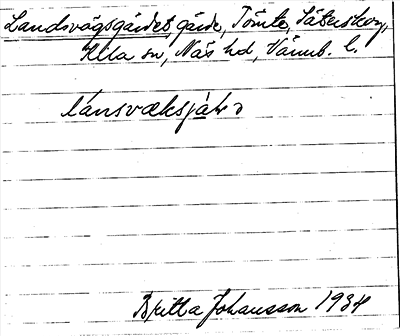 Landsvägsgärdet gärde, Tömte, Säterskog,
Kila sn, Näs hd, Värmb. l.
lánsvæksjàḷə
Britta Johansson 1934